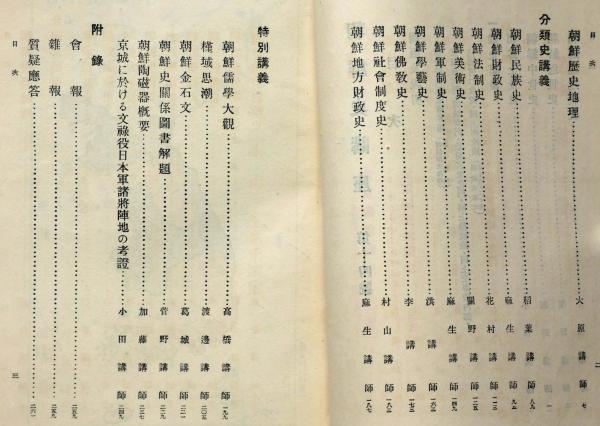 目次
二
朝鮮歷史地理 大原講師 七
分類史講義
朝鮮民族史 稻葉講師 八九
朝鮮財政史 麻生講師 九七
朝鮮法制史 花村講師 一二一
朝鮮軍制史 講師 一二五
朝鮮美術史 麻生講師 一四九
朝鮮學藝史 洪講師 一六一
朝鮮佛敎史 李講師 一七三
朝鮮社會制度史 村山講師 一八三
朝鮮地方財政史 麻生講師 一八七
特別講義
朝鮮儒學大觀 高橋講師 一九九
槿域思潮 渡邊講師 二〇五
朝鮮金石文 葛城講師 二二一
朝鮮史關係圖書解題 菅野講師 二二九
朝鮮陶磁器槪要 加藤講師 二三七
京城に於ける文祿役日本軍諸將陣地の考證 小田講師 二四九
附錄
會報 二五九
雜報 二五九
質疑應答 二六一
目次
三